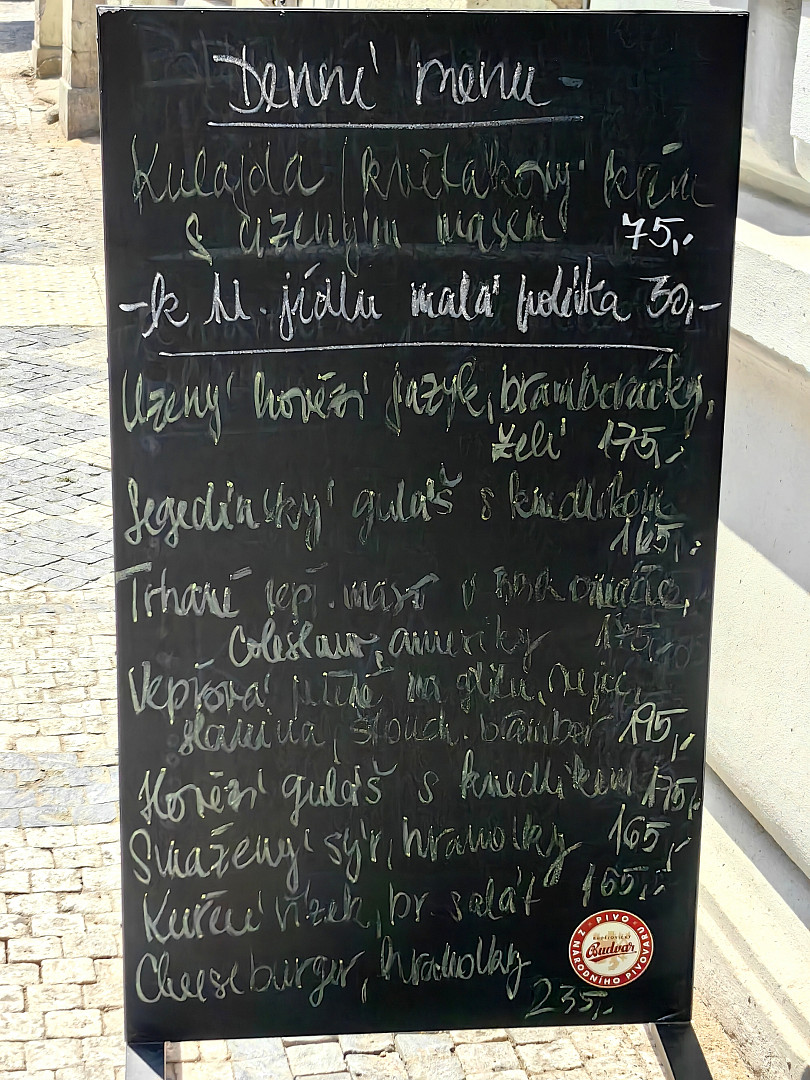 Denní menu
Kulajda / květákový krém
s uzeným masem 75,-
-k hl. jídlu malá polévka 30,-
Uzený hovězí jazyk, bramboráčky,
zelí 175,-
Segedínský guláš s knedlíkem
165,-
Trhané vepř. maso v
Coleslaw, ameriky 175,-
Vepřová na grilu,
slanina, šťouch. brambor 195,-
Hovězí guláš s knedlíkem 175,-
Smažený sýr, hranolky 165,-
Kuřecí řízek, br. salát 165,-
Cheeseburger, hranolky
235,-
PIVO Z NÁRODNÍHO PIVOVARU
Budvar